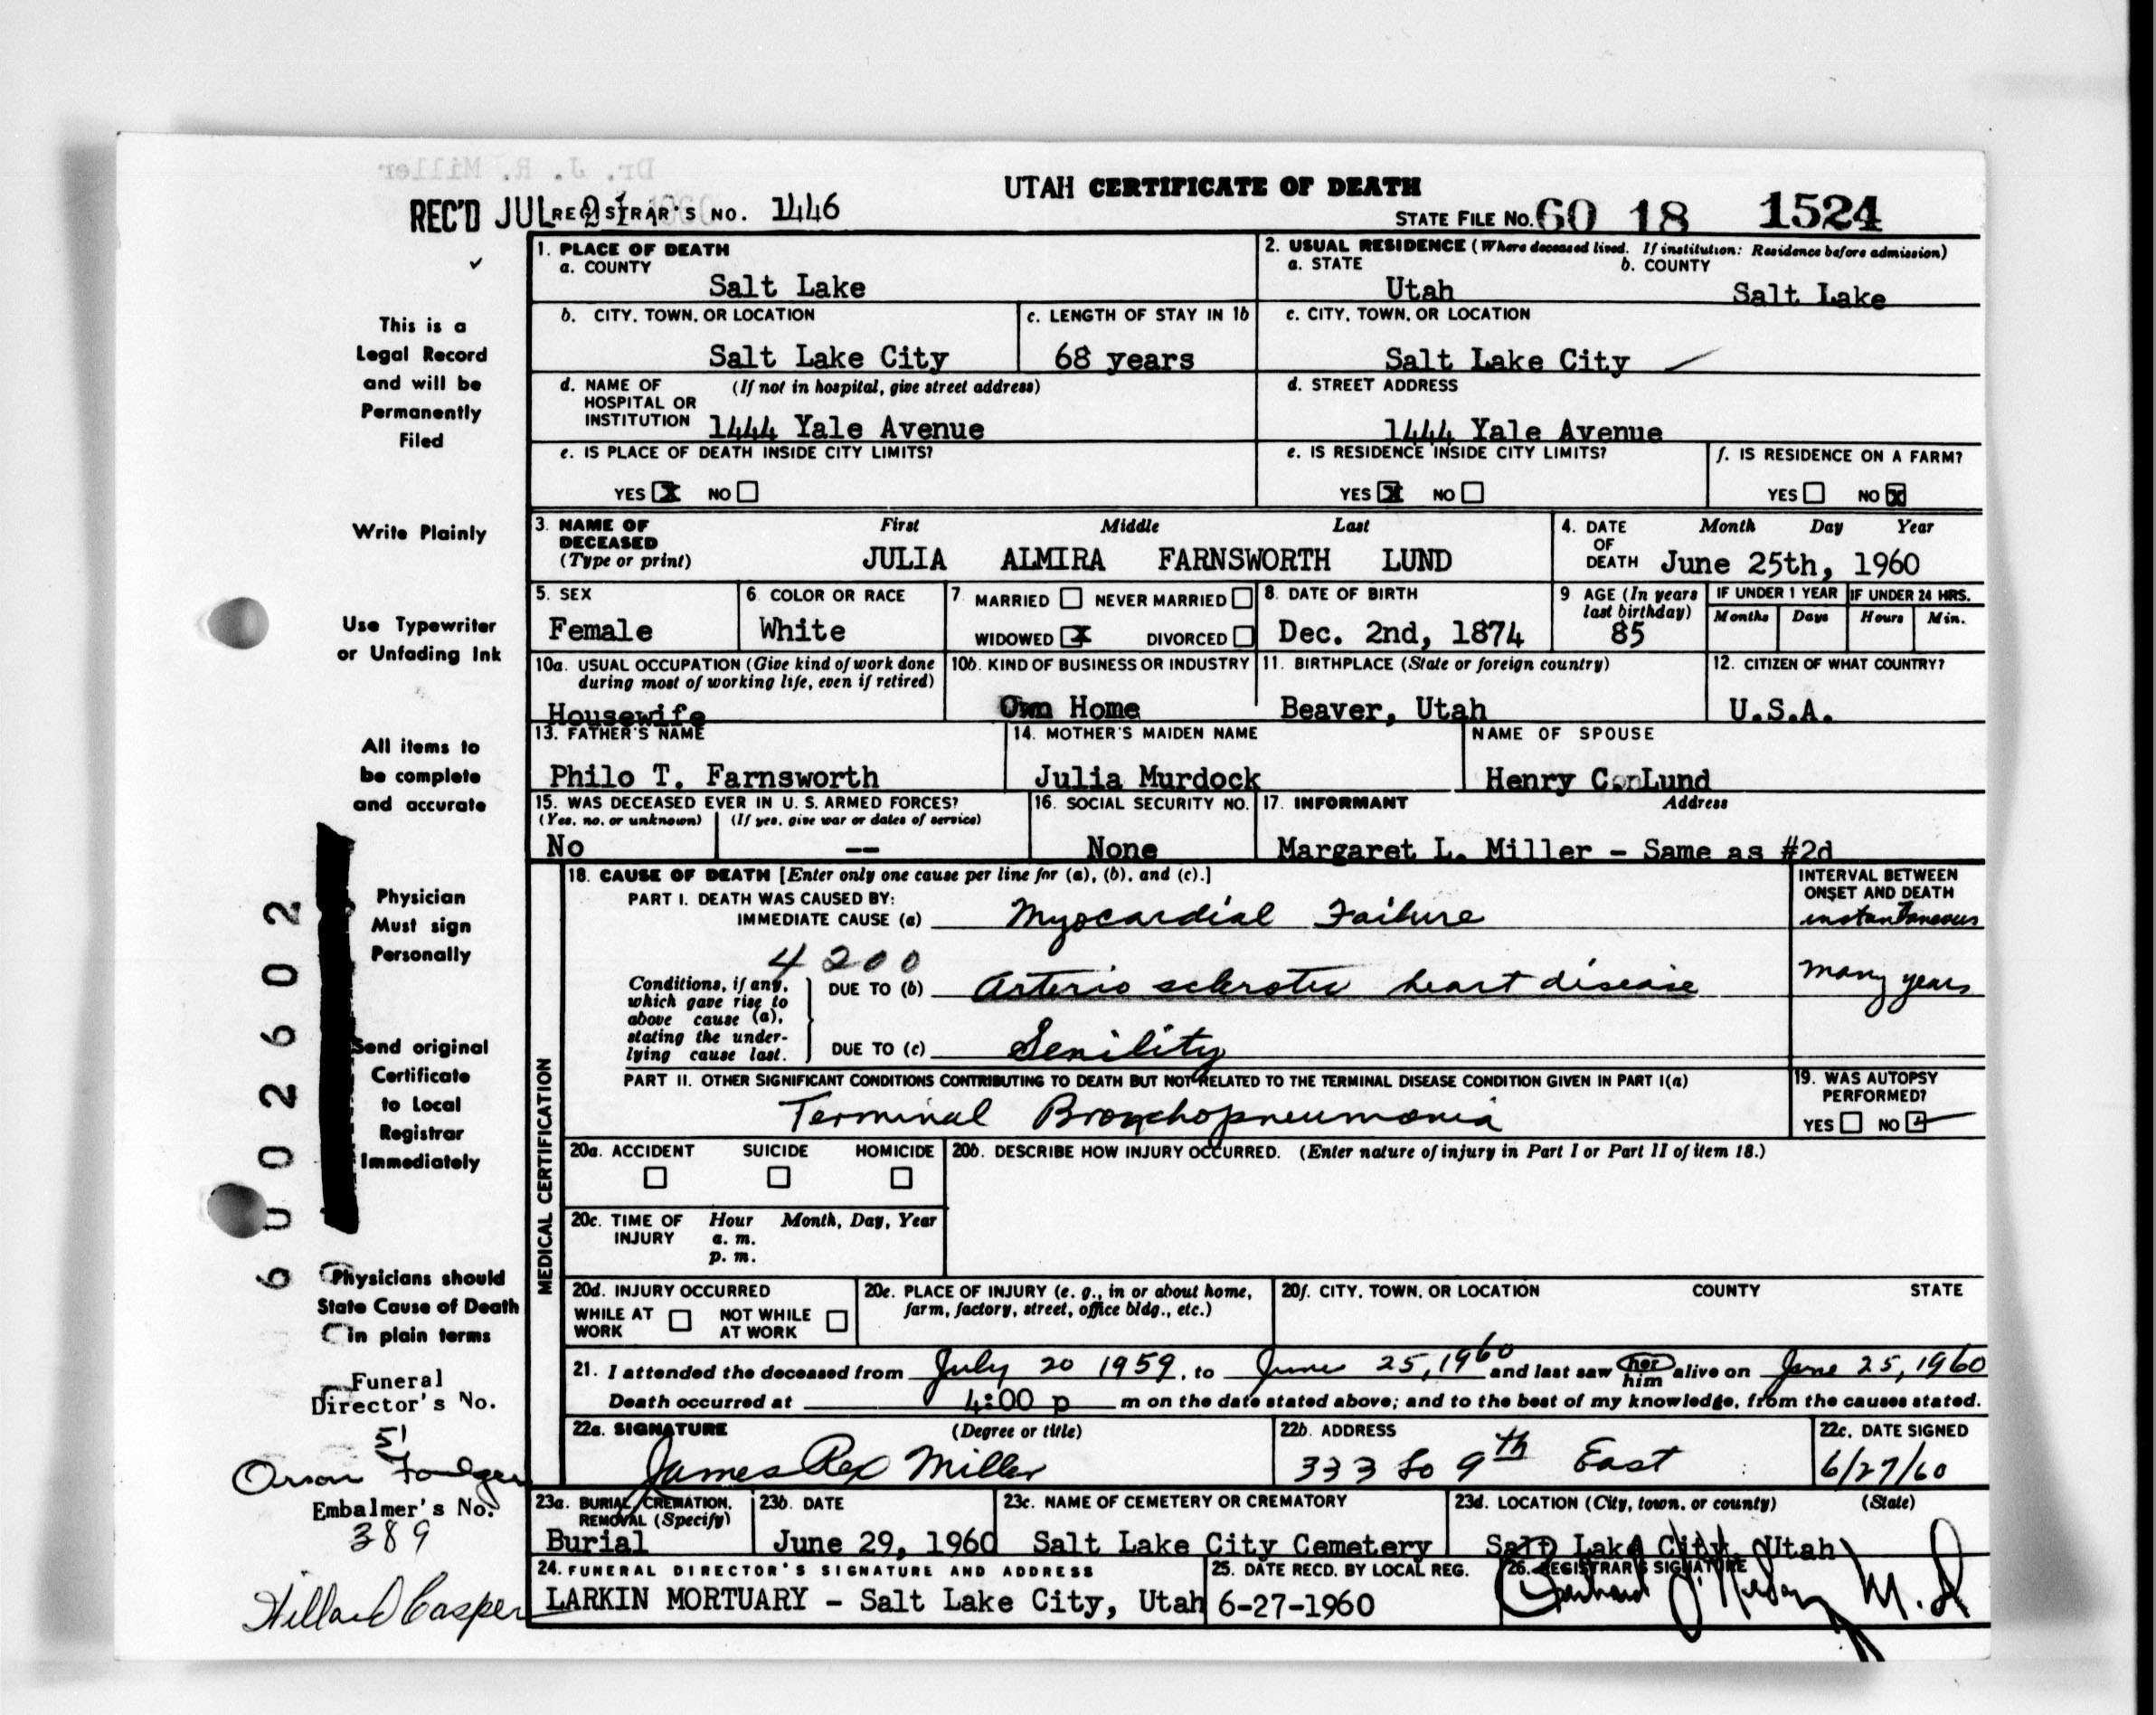 Dr. J. R. Miller
UTAH CERTIFICATE OF DEATH
REC'D JUL 21 1960 REGISTRAR'S NO. 1446 STATE FILE NO. 60 18 1524
1. PLACE OF DEATH
a. COUNTY
Salt Lake
2. USUAL RESIDENCE (Where deceased lived. If institution: Residence before admission)
a. STATE b. COUNTY
Utah Salt Lake
b. CITY, TOWN, OR LOCATION
Salt Lake City
c. LENGTH OF STAY IN 1b
68 years
c. CITY, TOWN, OR LOCATION
Salt Lake City
d. NAME OF (If not in hospital, give street address)
HOSPITAL OR
INSTITUTION 1444 Yale Avenue
d. STREET ADDRESS
1444 Yale Avenue
e. IS PLACE OF DEATH INSIDE CITY LIMITS?
YES X NO
e. IS RESIDENCE INSIDE CITY LIMITS?
YES X NO
f. IS RESIDENCE ON A FARM?
YES NO X
3. NAME OF First Middle Last
DECEASED
(Type or print) JULIA ALMIRA FARNSWORTH LUND
4. DATE Month Day Year
OF
DEATH June 25th, 1960
5. SEX
Female
6. COLOR OR RACE
White
7. MARRIED NEVER MARRIED
WIDOWED X DIVORCED
8. DATE OF BIRTH
Dec. 2nd, 1874
9 AGE (In years
last birthday)
85
IF UNDER 1 YEAR IF UNDER 24 HRS.
Months Days Hours Min.
10a. USUAL OCCUPATION (Give kind of work done
during most of working life, even if retired)
Housewife
10b. KIND OF BUSINESS OR INDUSTRY
Own Home
11. BIRTHPLACE (State or foreign country)
Beaver, Utah
12. CITIZEN OF WHAT COUNTRY?
U.S.A.
13. FATHER'S NAME
Philo T. Farnsworth
14. MOTHER'S MAIDEN NAME
Julia Murdock
NAME OF SPOUSE
Henry C. Lund
15. WAS DECEASED EVER IN U. S. ARMED FORCES?
(Yes, no, or unknown) (If yes, give war or dates of service)
No --
16. SOCIAL SECURITY NO.
None
17. INFORMANT Address
Margaret L. Miller - Same as #2d
MEDICAL CERTIFICATION
18. CAUSE OF DEATH [Enter only one cause per line for (a), (b), and (c).]
PART I. DEATH WAS CAUSED BY:
IMMEDIATE CAUSE (a) Myocardial Failure
INTERVAL BETWEEN
ONSET AND DEATH
instantaneous
4200
Conditions, if any,
which gave rise to
above cause (a),
stating the under-
lying cause last.
DUE TO (b) Arterio sclerotic heart disease
many years
DUE TO (c) Senility
PART II. OTHER SIGNIFICANT CONDITIONS CONTRIBUTING TO DEATH BUT NOT RELATED TO THE TERMINAL DISEASE CONDITION GIVEN IN PART I(a)
Terminal Bronchopneumonia
19. WAS AUTOPSY
PERFORMED?
YES NO
20a. ACCIDENT SUICIDE HOMICIDE
20b. DESCRIBE HOW INJURY OCCURRED. (Enter nature of injury in Part I or Part II of item 18.)
20c. TIME OF Hour Month, Day, Year
INJURY a. m.
p. m.
20d. INJURY OCCURRED
WHILE AT NOT WHILE
WORK AT WORK
20e. PLACE OF INJURY (e. g., in or about home,
farm, factory, street, office bldg., etc.)
20f. CITY, TOWN, OR LOCATION COUNTY STATE
21. I attended the deceased from July 20 1959, to June 25, 1960 and last saw her him alive on June 25, 1960
Death occurred at 4:00 p m on the date stated above; and to the best of my knowledge, from the causes stated.
22a. SIGNATURE (Degree or title)
James Rex Miller
22b. ADDRESS
333 So 9th East
22c. DATE SIGNED
6/27/60
23a. BURIAL, CREMATION,
REMOVAL (Specify)
Burial
23b. DATE
June 29, 1960
23c. NAME OF CEMETERY OR CREMATORY
Salt Lake City Cemetery
23d. LOCATION (City, town, or county) (State)
Salt Lake City, Utah
24. FUNERAL DIRECTOR'S SIGNATURE AND ADDRESS
LARKIN MORTUARY - Salt Lake City, Utah
25. DATE RECD. BY LOCAL REG.
6-27-1960
26. REGISTRAR'S SIGNATURE
M.D
This is a
Legal Record
and will be
Permanently
Filed
Write Plainly
Use Typewriter
or Unfading Ink
All items to
be complete
and accurate
Physician
Must sign
Personally
Send original
Certificate
to Local
Registrar
Immediately
Physicians should
State Cause of Death
in plain terms
Funeral
Director's No.
51
Orson Foulger
Embalmer's No.
389
Willard Casper
6002602